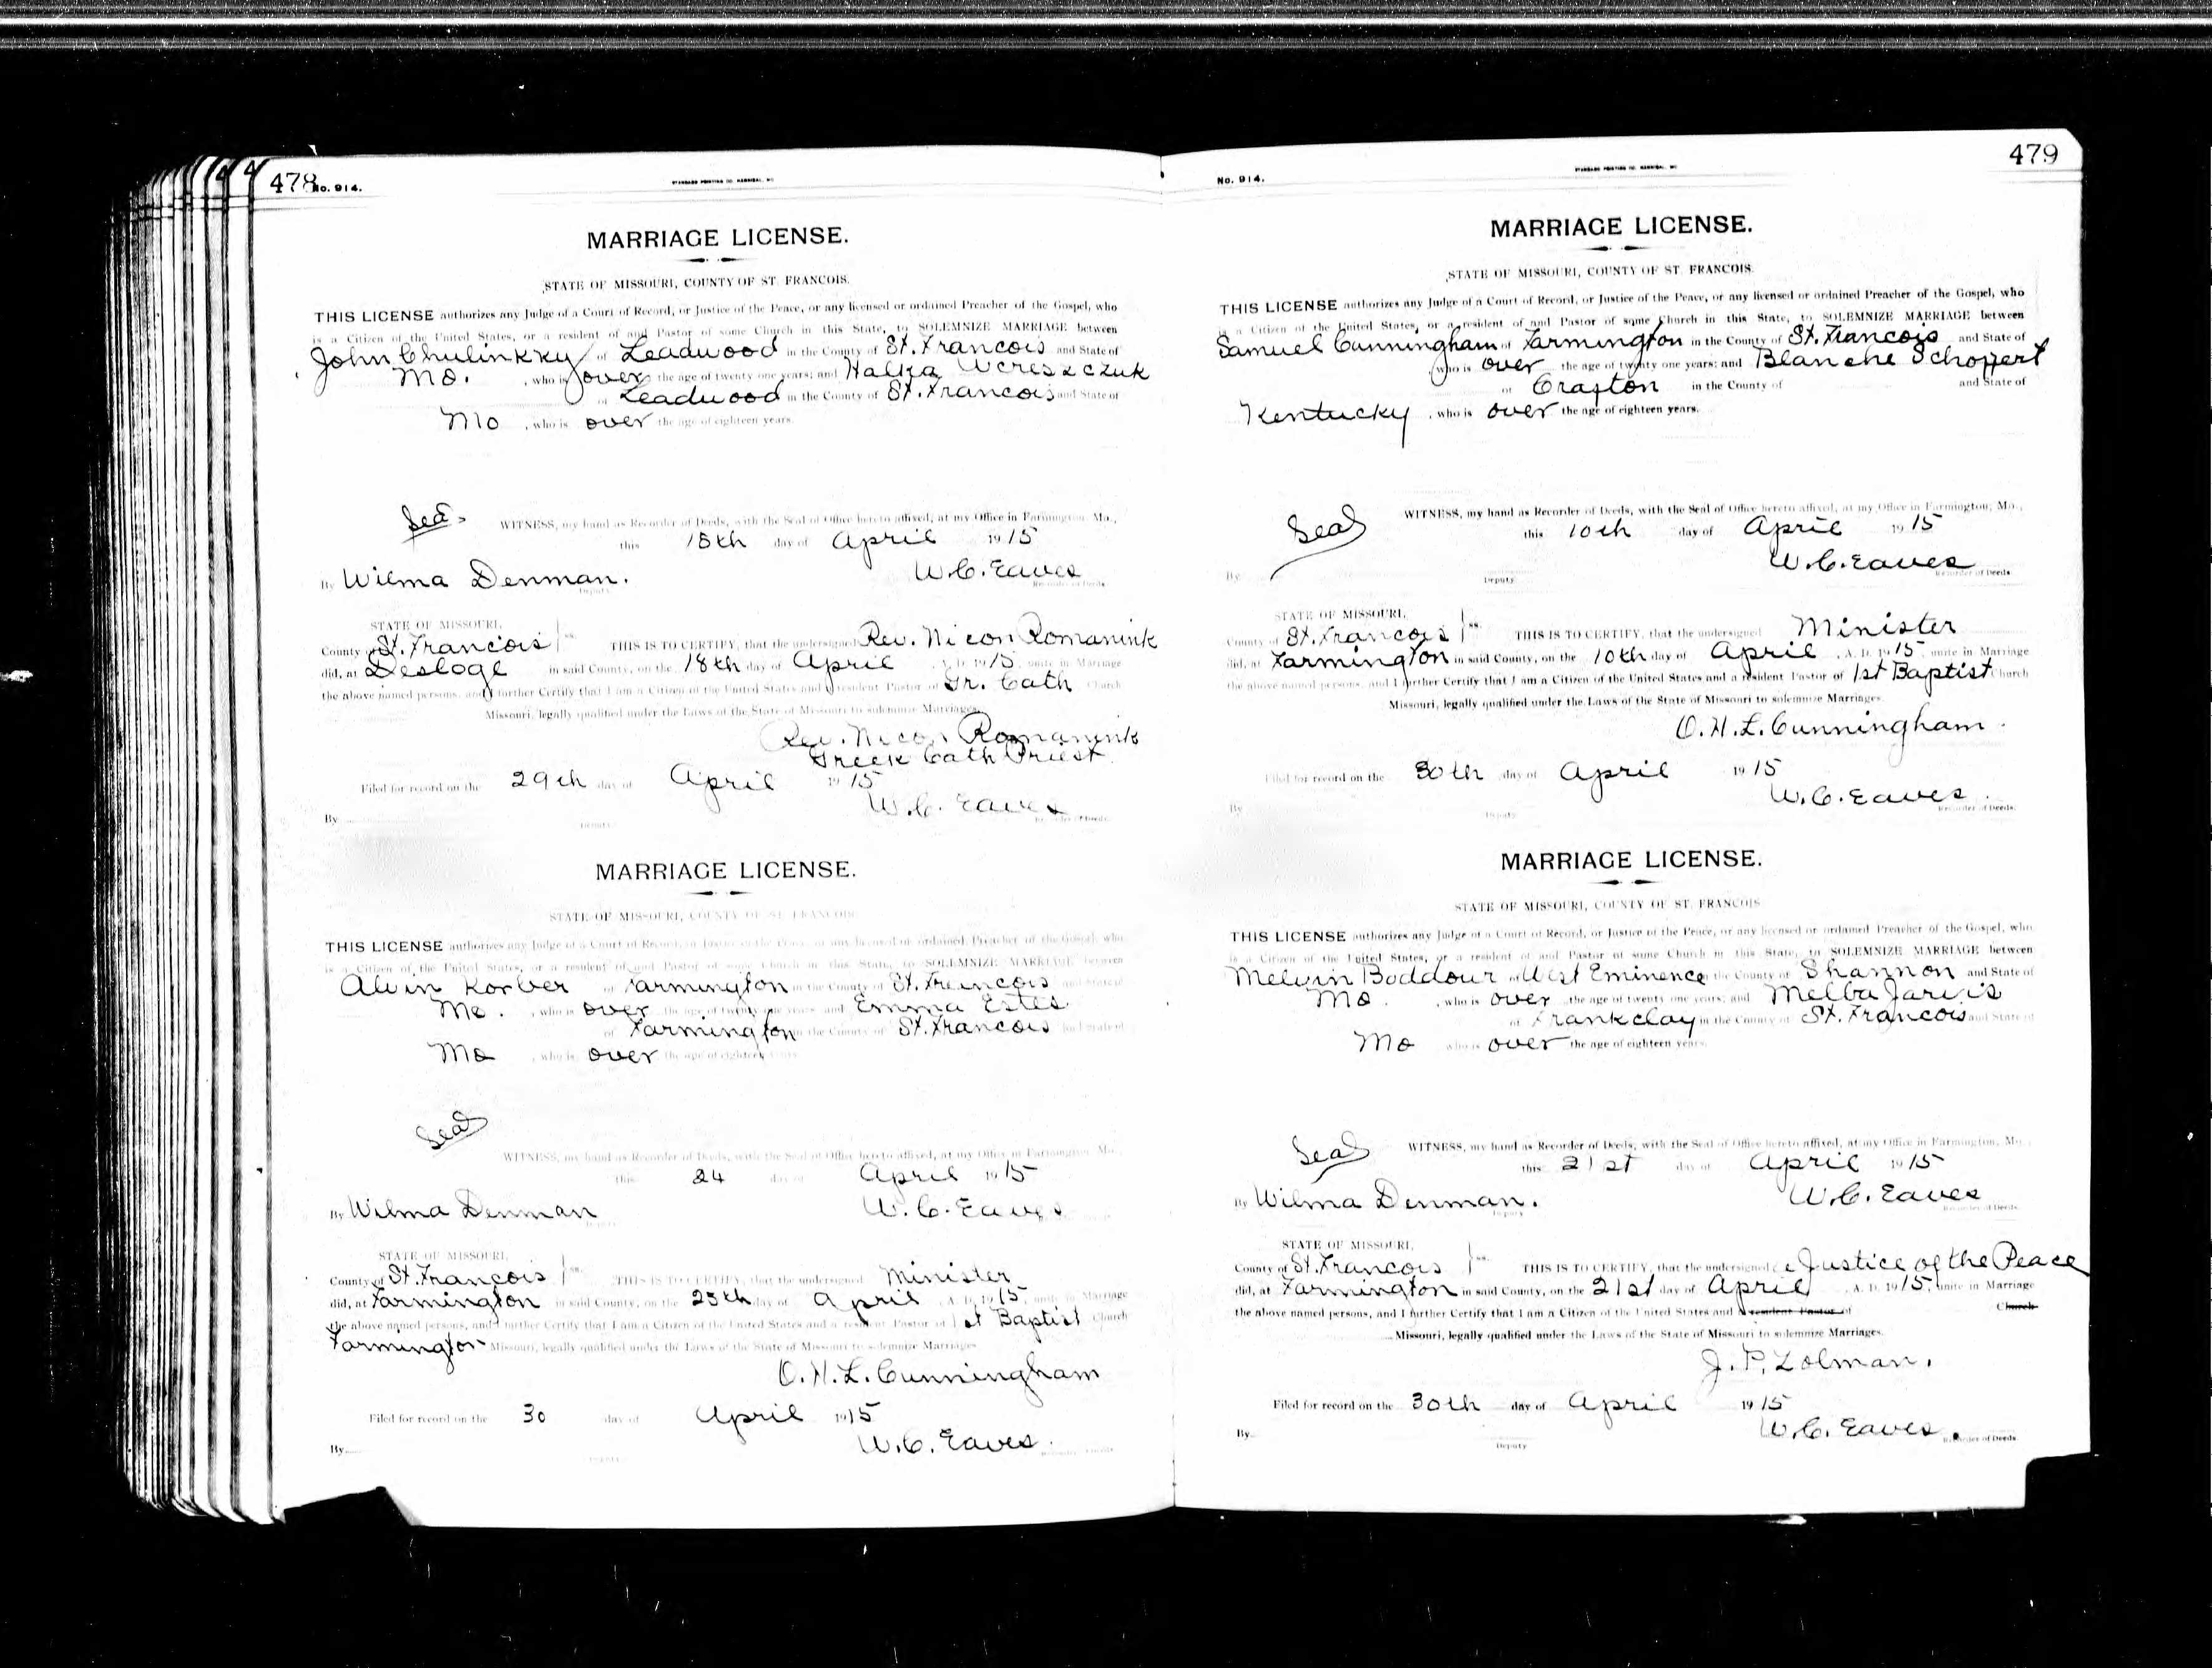 478 No. 914.
STANDARD PRINTING CO. HANNIBAL, MO.
MARRIAGE LICENSE.
STATE OF MISSOURI, COUNTY OF ST. FRANCOIS.
THIS LICENSE authorizes any Judge of a Court of Record, or Justice of the Peace, or any licensed or ordained Preacher of the Gospel, who
is a Citizen of the United States, or a resident of and Pastor of some Church in this State, to SOLEMNIZE MARRIAGE between
John Chulinkky of Leadwood in the County of St. Francois and State of
Mo. , who is over the age of twenty one years; and Halka Wereszczuk
of Leadwood in the County of St. Francois and State of
Mo , who is over the age of eighteen years.
Seal
WITNESS, my hand as Recorder of Deeds, with the Seal of Office hereto affixed, at my Office in Farmington, Mo.,
this 18th day of April 1915
By Wilma Denman. W.C. Eaves
Deputy Recorder of Deeds
STATE OF MISSOURI,
County of St. Francois ss. THIS IS TO CERTIFY, that the undersigned Rev. Nicon Romanink
did, at Desloge in said County, on the 18th day of April A. D. 1915, unite in Marriage
the above named persons, and I further Certify that I am a Citizen of the United States and a resident Pastor of Gr. Cath Church
Missouri, legally qualified under the Laws of the State of Missouri to solemnize Marriages.
Rev. Nicon Romanink
Greek Cath Priest
Filed for record on the 29th day of April 1915
W.C. Eaves
By Deputy Recorder of Deeds.
MARRIAGE LICENSE.
STATE OF MISSOURI, COUNTY OF ST. FRANCOIS
THIS LICENSE authorizes any Judge of a Court of Record, or Justice of the Peace, or any licensed or ordained Preacher of the Gospel, who
is a Citizen of the United States, or a resident of and Pastor of some Church in this State, to SOLEMNIZE MARRIAGE between
Alvin Korber of Farmington in the County of St. Francois and State of
Mo. , who is over the age of twenty one years and Emma Estes
of Farmington in the County of St. Francois and State of
Mo , who is over the age of eighteen years
Seal
WITNESS, my hand as Recorder of Deeds, with the Seal of Office hereto affixed, at my Office in Farmington, Mo.,
this 24 day of April 1915
By Wilma Denman W.C. Eaves
Deputy
STATE OF MISSOURI,
County of St. Francois ss. THIS IS TO CERTIFY, that the undersigned Minister
did, at Farmington in said County, on the 25th day of April A. D. 1915, unite in Marriage
the above named persons, and I further Certify that I am a Citizen of the United States and a resident Pastor of 1st Baptist Church
Farmington Missouri, legally qualified under the Laws of the State of Missouri to solemnize Marriages
O.H.L. Cunningham
Filed for record on the 30 day of April 1915
W.C. Eaves.
By Deputy Recorder of Deeds
479
No. 914.
STANDARD PRINTING CO. HANNIBAL, MO.
MARRIAGE LICENSE.
STATE OF MISSOURI, COUNTY OF ST. FRANCOIS.
THIS LICENSE authorizes any Judge of a Court of Record, or Justice of the Peace, or any licensed or ordained Preacher of the Gospel, who
is a Citizen of the United States, or a resident of and Pastor of some Church in this State, to SOLEMNIZE MARRIAGE between
Samuel Cunningham of Farmington in the County of St. Francois and State of
who is over the age of twenty one years; and Blanche Schoppert
of Crafton in the County of and State of
Kentucky , who is over the age of eighteen years.
Seal
WITNESS, my hand as Recorder of Deeds, with the Seal of Office hereto affixed, at my Office in Farmington, Mo.,
this 10th day of April 1915
W.C. Eaves
By Deputy Recorder of Deeds
STATE OF MISSOURI,
County of St. Francois ss. THIS IS TO CERTIFY, that the undersigned Minister
did, at Farmington in said County, on the 10th day of April , A. D. 1915, unite in Marriage
the above named persons, and I further Certify that I am a Citizen of the United States and a resident Pastor of 1st Baptist Church
Missouri, legally qualified under the Laws of the State of Missouri to solemnize Marriages.
O.H.L. Cunningham.
Filed for record on the 30th day of April 1915
W.C. Eaves.
By Deputy Recorder of Deeds.
MARRIAGE LICENSE.
STATE OF MISSOURI, COUNTY OF ST. FRANCOIS
THIS LICENSE authorizes any Judge of a Court of Record, or Justice of the Peace, or any licensed or ordained Preacher of the Gospel, who
is a Citizen of the United States, or a resident of and Pastor of some Church in this State, to SOLEMNIZE MARRIAGE between
Melvin Boddour of West Eminence the County of Shannon and State of
Mo , who is over the age of twenty one years; and Melba Jarvis
of Frankclay in the County of St. Francois and State of
Mo who is over the age of eighteen years.
Seal
WITNESS, my hand as Recorder of Deeds, with the Seal of Office hereto affixed, at my Office in Farmington, Mo.,
this 21st day of April 1915
By Wilma Denman. W.C. Eaves
Deputy Recorder of Deeds
STATE OF MISSOURI,
County of St. Francois ss. THIS IS TO CERTIFY, that the undersigned a Justice of the Peace
did, at Farmington in said County, on the 21st day of April A. D. 1915, unite in Marriage
the above named persons, and I further Certify that I am a Citizen of the United States and a resident Pastor of Church
Missouri, legally qualified under the Laws of the State of Missouri to solemnize Marriages.
J.P. Zolman.
Filed for record on the 30th day of April 1915
W.C. Eaves.
By Deputy Recorder of Deeds